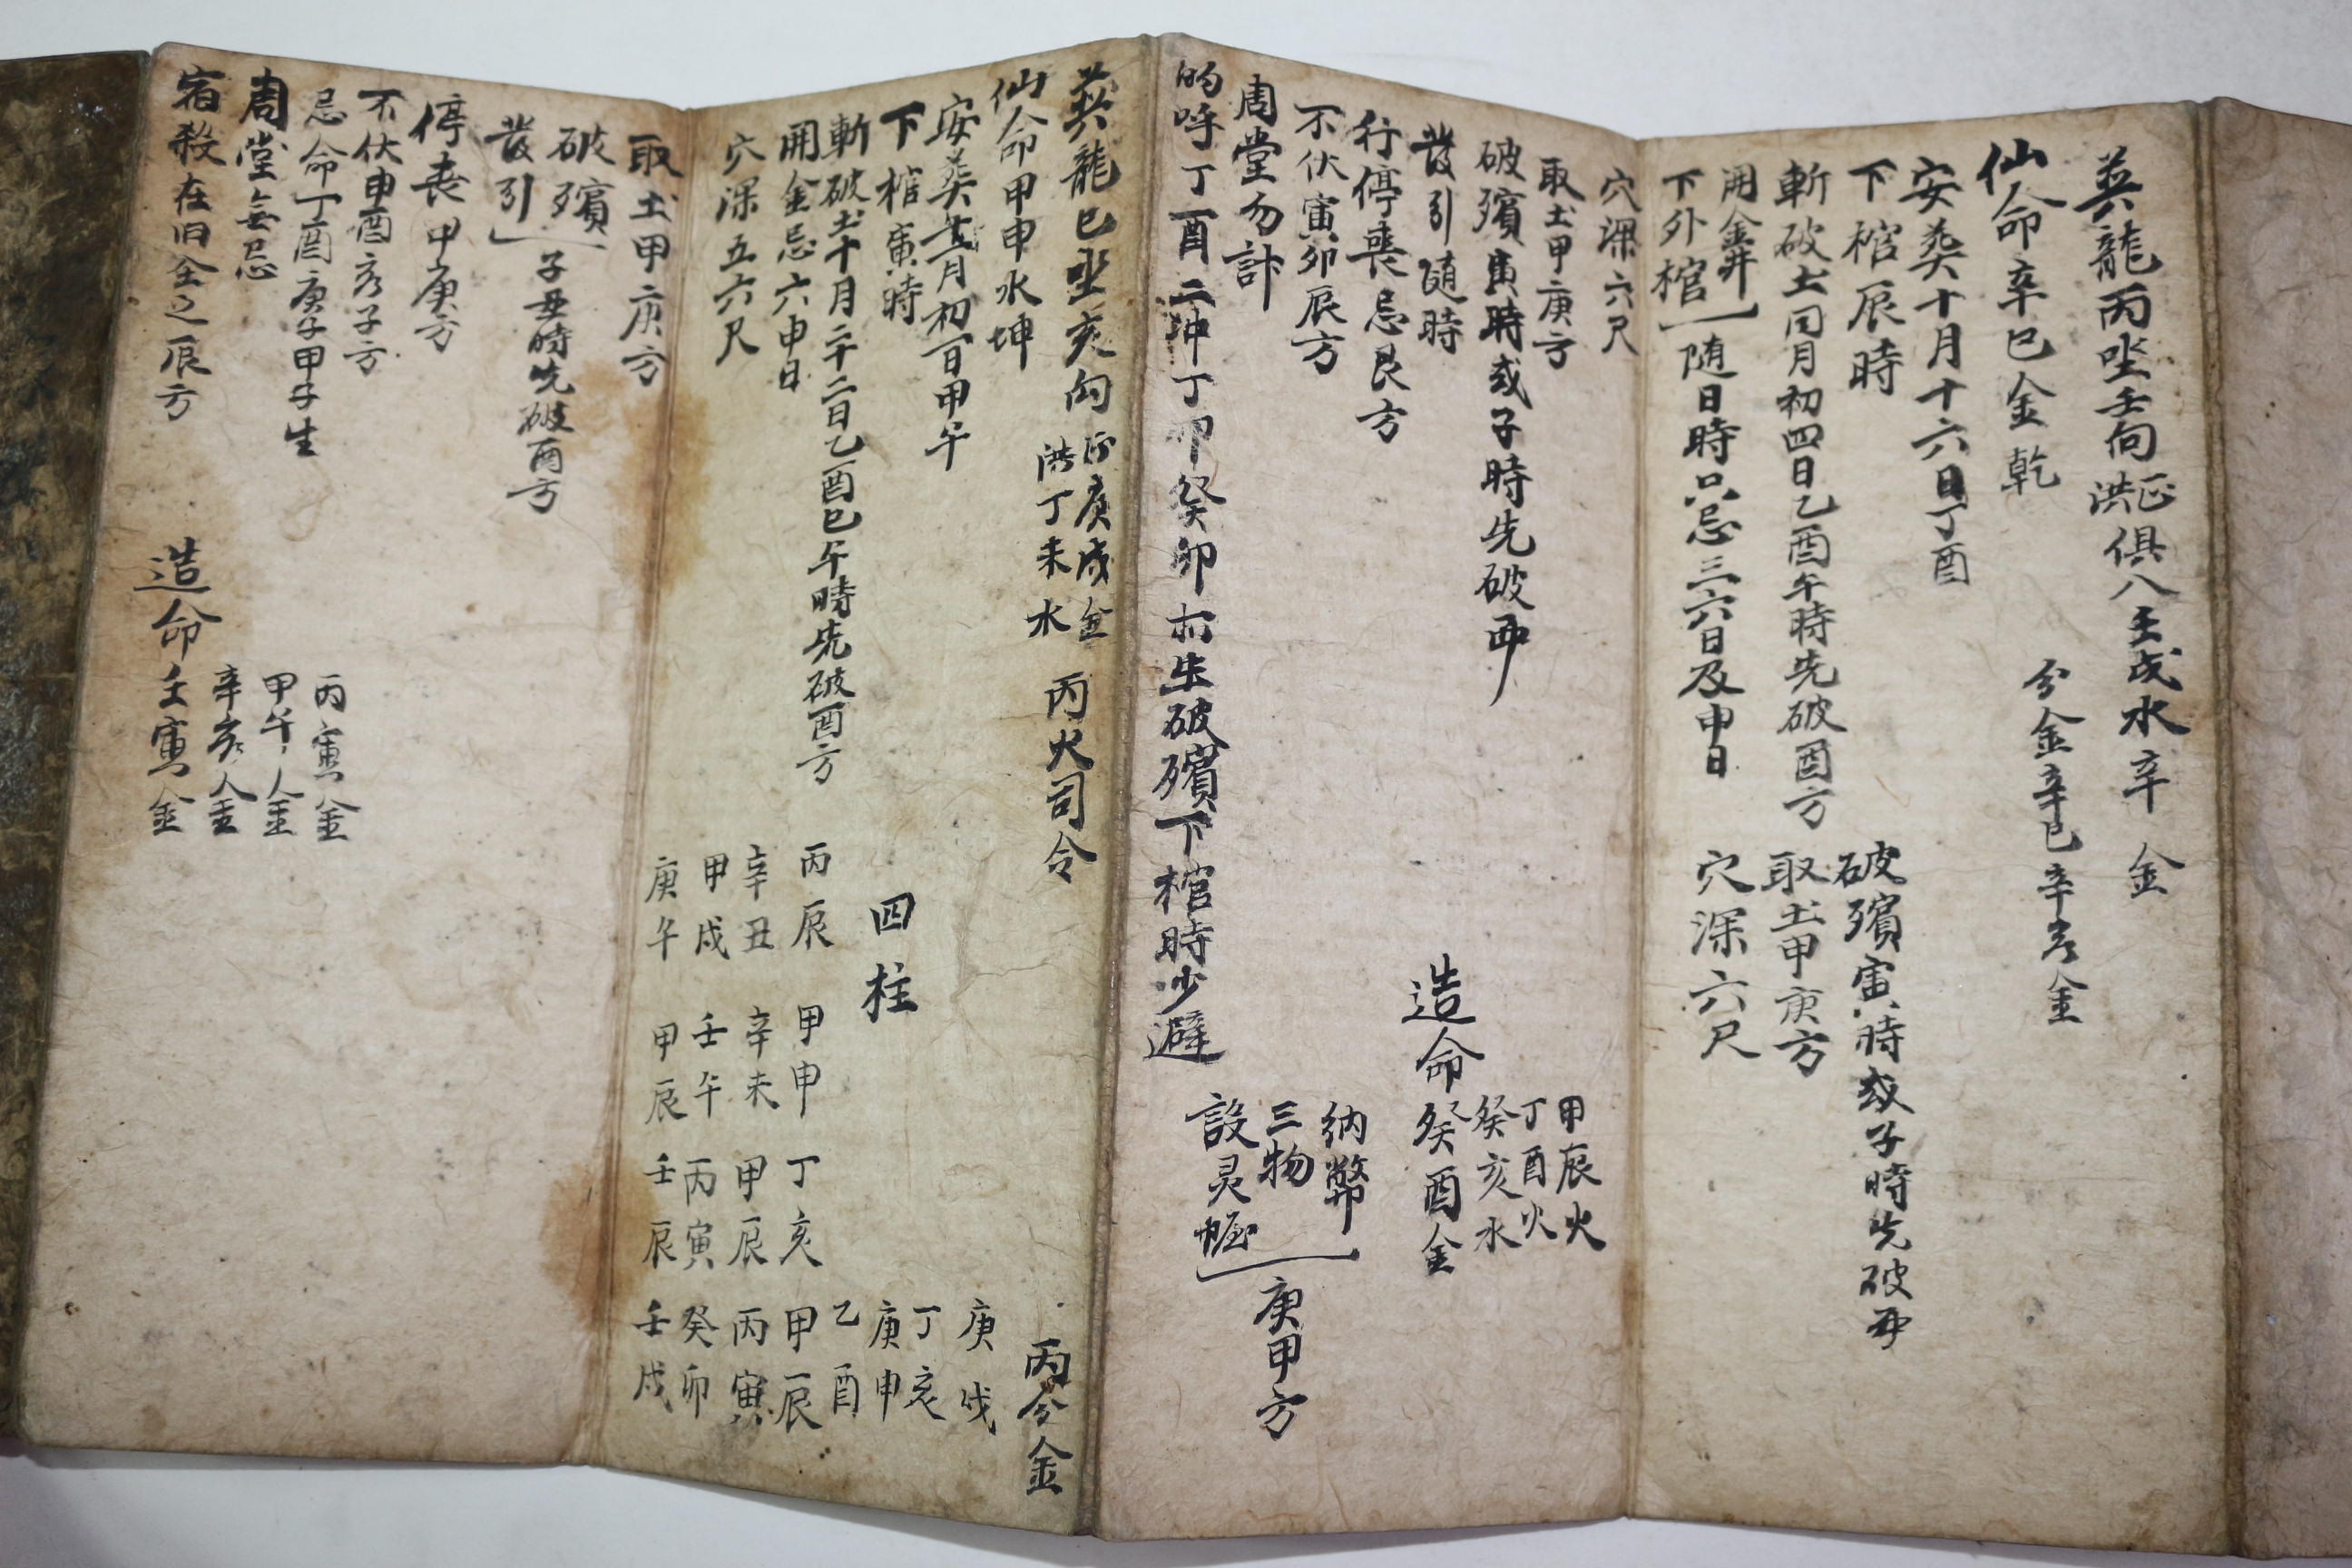 葬龍丙坐壬向 洪正 俱八壬戌水 辛 金
仙命辛巳金 乾 分金辛巳辛亥金
安葬十月十六日丁酉
下棺辰時
斬破土同月初四日乙酉午時先破酉方
開金井
下外棺 随日時只忌三六日及申日
破殯寅時或子時先破
取土甲庚方
穴深六尺
穴深六尺
取土甲庚方
破殯寅時或子時先破
發引随時
行停喪忌艮方
不伏寅卯辰方
周堂勿計
的呼丁酉 丁卯癸卯 生破殯下棺時少避
甲辰火
丁酉火
癸亥水
造命癸酉金
納幣
三物
設灵幄 庚甲方
葬龍巳坐亥向 正庚戌金 洪丁未水 丙火司令 丙分金
仙命甲申水坤
安葬 月初一日甲午
下棺寅時
斬破土十月二十二日乙酉巳午時先破酉方
開金忌六申日
穴深五六尺
四柱
庚戌
丁亥
庚申
乙酉
丙辰 甲申 丁亥 甲辰
辛丑 辛未 甲辰 丙寅
甲戌 壬午 丙寅 癸卯
庚午 甲辰 壬辰 壬戌
取土甲庚方
破殯
發引 子丑時先破酉方
停喪甲庚方
不伏申酉亥子方
忌命丁酉庚子甲子生
周堂無忌
宿殺在旧全之辰方
丙寅金
甲午金
辛亥金
造命壬寅金